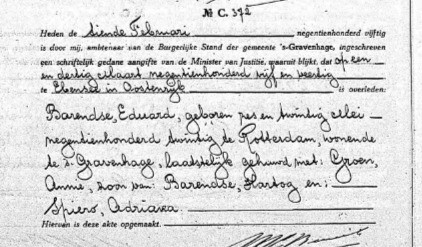 № C. 372
Heden de tiende Februari negentienhonderd vijftig
is door mij, ambtenaar van de Burgerlijke Stand der gemeente 's-Gravenhage, ingeschreven
een schriftelijk gedane aangifte van de Minister van Justitie, waaruit blijkt, dat op een
en dertig Maart negentienhonderd vijf en veertig
te Ebensee in Oostenrijk is overleden:
Barendse, Eduard, geboren zes en twintig Mei
negentienhonderd twintig te Rotterdam, wonende
te 's Gravenhage, laatstelijk gehuwd met: Groen,
Anna, zoon van: Barendse, Hartog en:
Spiero, Adriana.
Hiervan is deze akte opgemaakt.